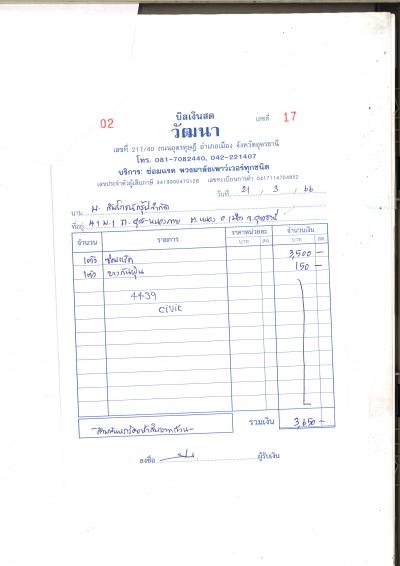 02
บิลเงินสด
เลขที่ 17
วัฒนา
เลขที่ 217/40 ถนนอุดรดุษฎี อำเภอเมือง จังหวัดอุดรธานี
โทร. 081-7082440, 042-221407
บริการ: ซ่อมแรค พวงมาลัยเพาว์เวอร์ทุกชนิด
เลขประจำตัวผู้เสียภาษี 3419900475128 เลขทะเบียนการค้า 0417114704802
วันที่ 21 / 3 / 66
นาม
ที่อยู่ 41 ม.1
จำนวน รายการ ราคาหน่วยละ จำนวนเงิน
บาท สต. บาท สต.
1 ตัว ซ่อมแร็ค 3,500 -
1 ตัว ยางกันฝุ่น 150 -
4439
civic
- สามพันหกร้อยห้าสิบบาทถ้วน - รวมเงิน 3,650 -
ลงชื่อ ผู้รับเงิน